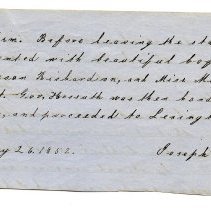 Before leaving the sta
ented with beautiful boq
son Richardson, and Miss M
t. Gov. Kossuth was then
, and proceeded to Lexing
y 26. 1852. Joseph